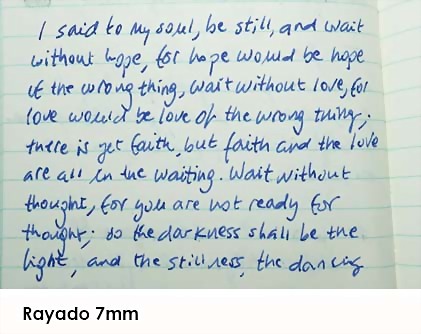 I said to my soul, be still, and wait
without hope, for hope would be hope
of the wrong thing, wait without love, for
love would be love of the wrong thing;
there is yet faith, but faith and the love
are all in the waiting. Wait without
thought, for you are not ready for
thought; so the darkness shall be the
light, and the stillness, the dancing
Rayado 7mm